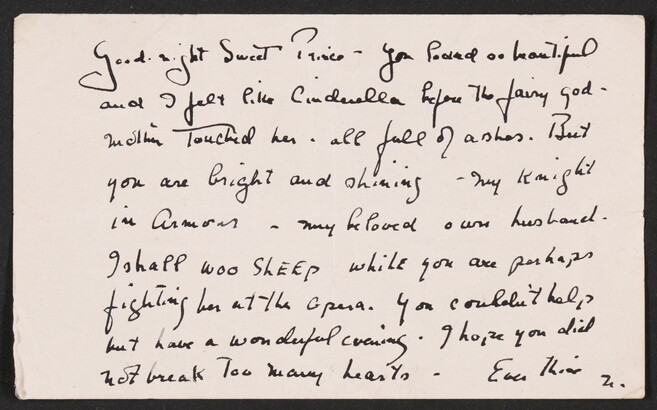 Good-night Sweet Prince - You looked so beautiful
and I felt like Cinderella before the fairy god-
mother Touched her - all full of ashes. But
you are bright and shining - my Knight
in Armour - my beloved own husband.
I shall woo SHEEp while you are perhaps
fighting her at the opera. You couldn't help
but have a wonderful evening. I hope you did
not break Too many hearts - Ever thine n.